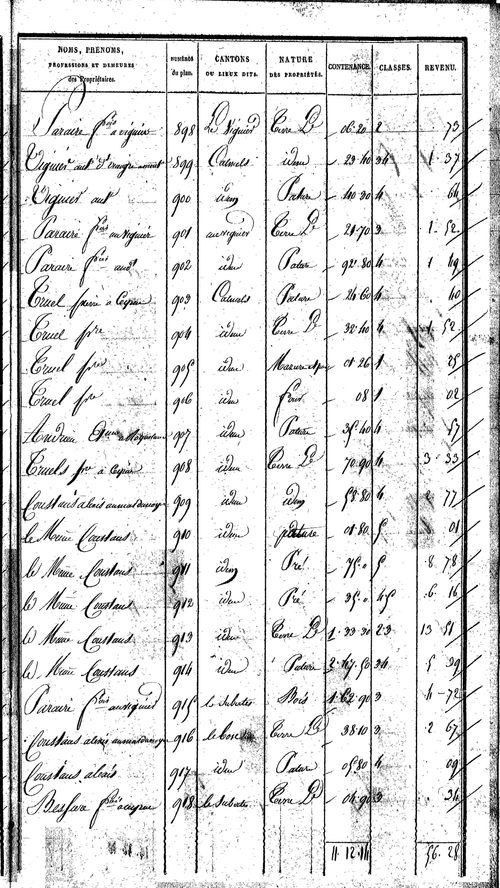 NOMS, PRÉNOMS, PROFESSIONS ET DEMEURES des Propriétaires. NUMÉROS du plan. CANTONS OU LIEUX DITS. NATURE DES PROPRIÉTÉS. CONTENANCE. CLASSES. REVENU.
Paraire frois a viguier 898 Le Viguier Terre L 06 20 2 73
Viguier ant 899 Calmels idem 23 40 34 1 37
Viguier ant 900 idem Pature 40 30 4 64
Paraire frois au viguier 901 au viguier Terre L 21 70 3 1 52
Paraire frois 902 idem Pature 92 80 4 1 49
Truel pierre a Ceyrac 903 Calmels Pature 24 60 4 40
Truel pre 904 idem Terre L 32 40 4 1 52
Truel pre 905 idem Masure 01 26 1 25
Truel pre 906 idem four 08 1 02
907 idem Pature 35 40 4 57
Truels pre a Ceyrac 908 idem Terre L 70 90 4 3 33
Constans alexis 909 idem idem 58 80 4 2 77
le Meme Constans 910 idem pature 01 80 5 01
le Meme Constans 911 idem Pré 75 0 5 8 78
le Meme Constans 912 idem Pré 35 0 45 6 16
le Meme Constans 913 idem Terre L 1 33 30 23 13 51
le Meme Constans 914 idem Pature 2 47 50 34 5 39
Paraire frois au viguier 915 Bois 1 62 90 3 4 72
Constans alexis 916 le bosc Terre L 38 10 3 2 67
Constans alexis 917 idem Pature 05 80 4 09
918 Terre L 04 90 3 34
11 12 14 56 28